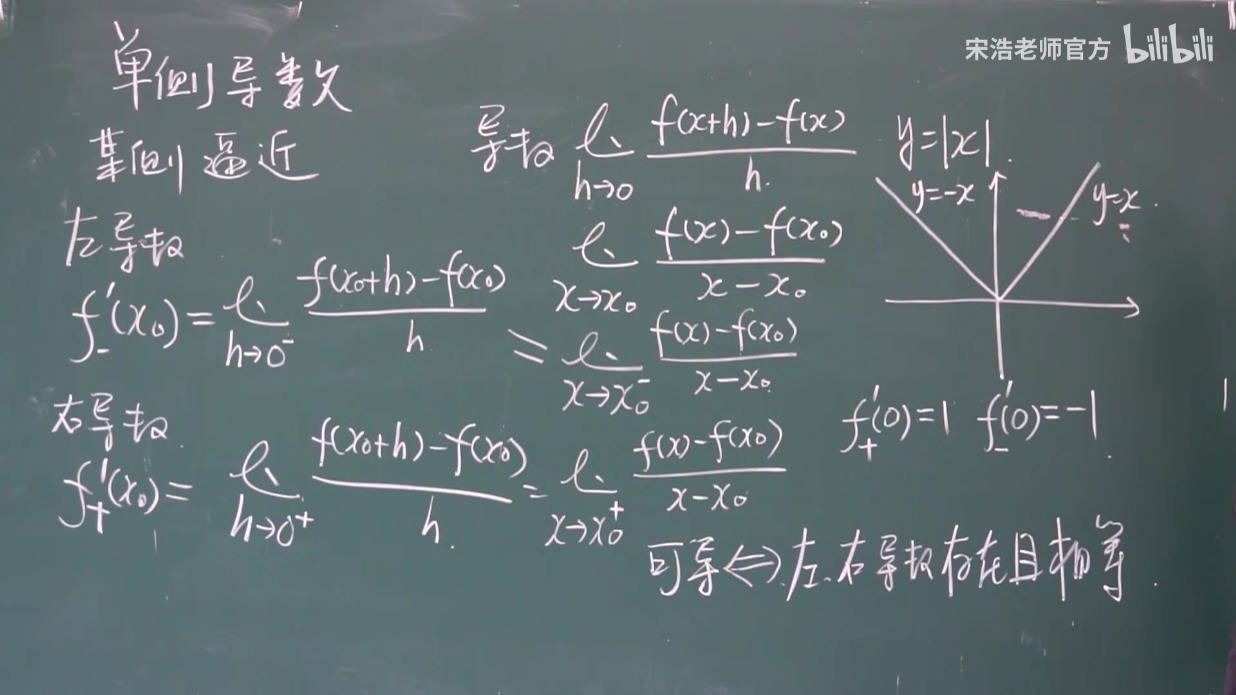 宋浩老师官方 bilibili
单侧导数
某侧逼近
左导数
f₋′(x₀)=lim h→0⁻ (f(x₀+h)−f(x₀))/h = lim x→x₀⁻ (f(x)−f(x₀))/(x−x₀)
右导数
f₊′(x₀)=lim h→0⁺ (f(x₀+h)−f(x₀))/h = lim x→x₀⁺ (f(x)−f(x₀))/(x−x₀)
导数 lim h→0 (f(x+h)−f(x))/h
lim x→x₀ (f(x)−f(x₀))/(x−x₀)
y=|x|
y=-x
y=x
f₊′(0)=1 f₋′(0)=-1
可导⇔左、右导数存在且相等